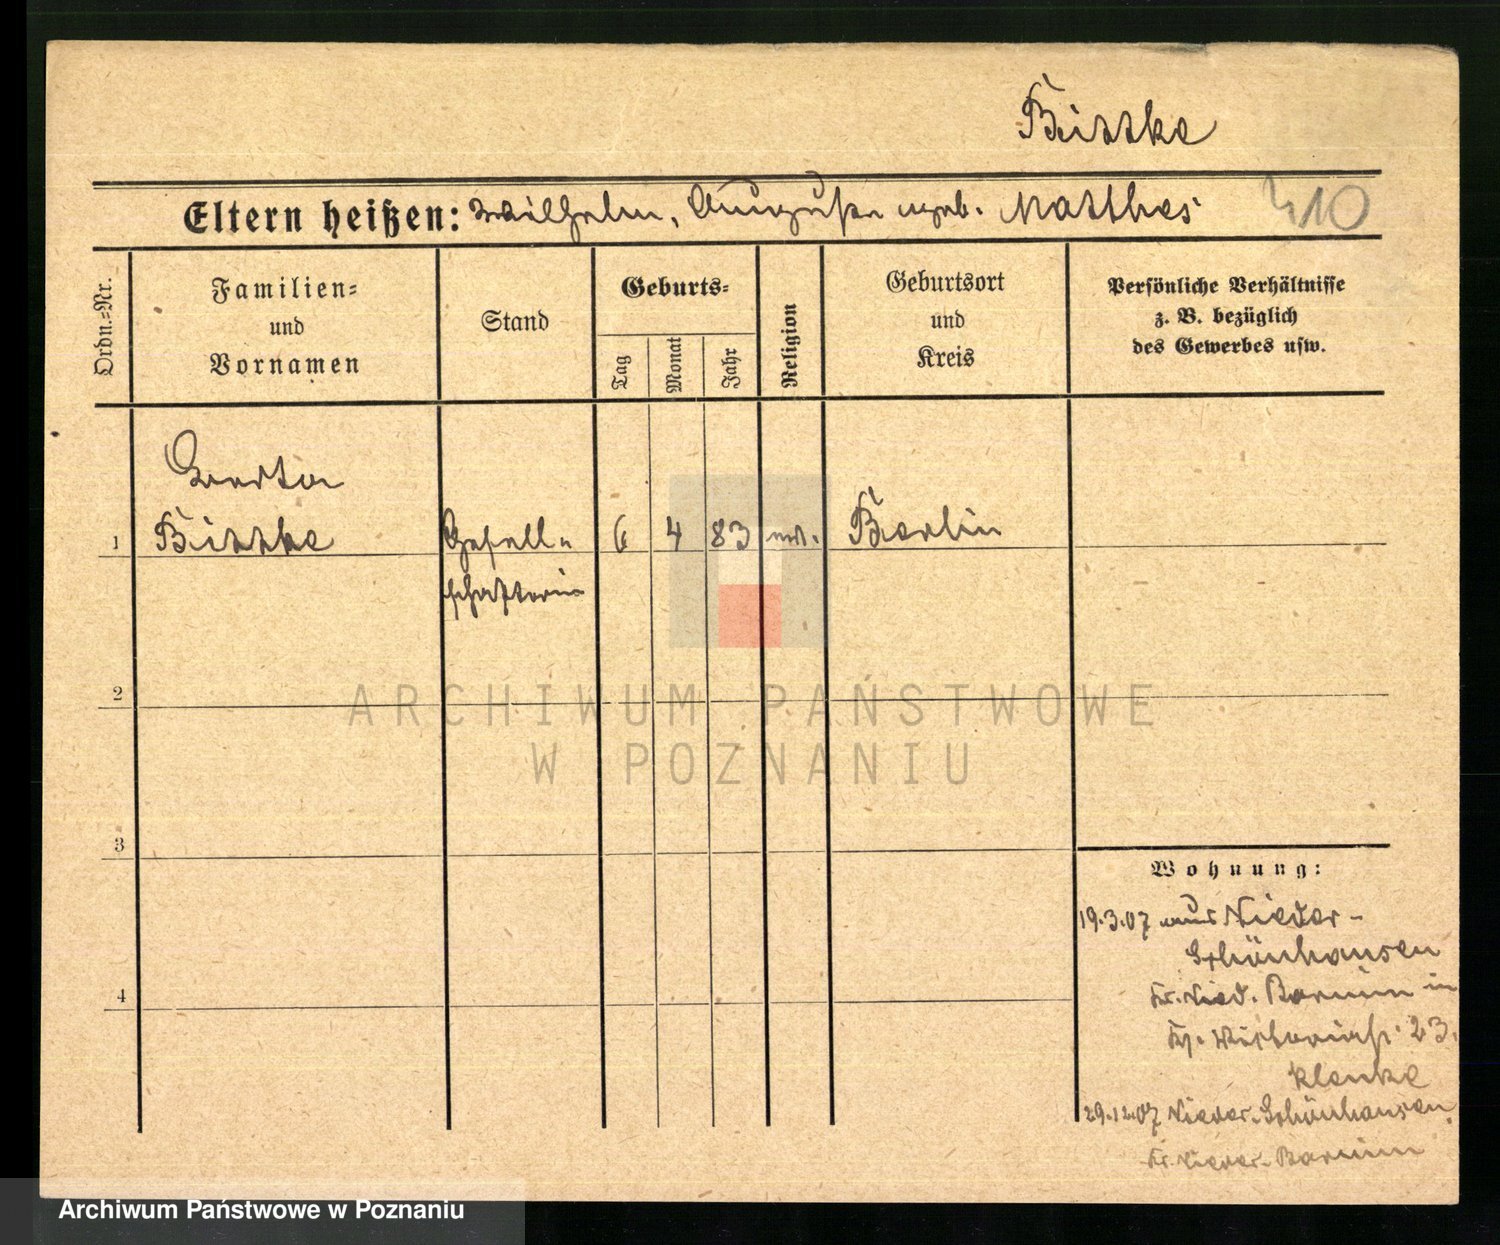 Bittke
Eltern heißen: Wilhelm, Auguste geb. Matthes 410
Ordn.-Nr.
Familien-
und
Vornamen
Stand
Geburts-
Tag
Monat
Jahr
Religion
Geburtsort
und
Kreis
Persönliche Verhältnisse
z. B. bezüglich
des Gewerbes usw.
1 Bittke Gesell- 6 4 83 Berlin
schafterin
2
3
4
Wohnung:
19.3.07 aus Nieder-
Schönhausen
Kr. Nied. Barnim in
23.
Klenke
29.12.07 Nieder-Schönhausen
Kr. Nieder-Barnim
ARCHIWUM PAŃSTWOWE
W POZNANIU
Archiwum Państwowe w Poznaniu